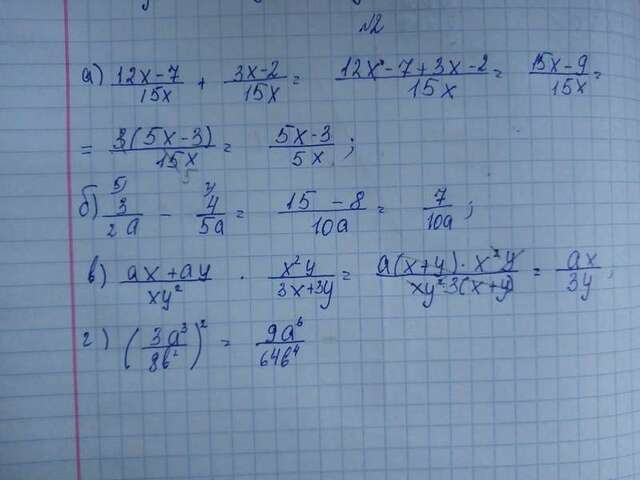 №2
а) (12x-7)/(15x) + (3x-2)/(15x) = (12x-7+3x-2)/(15x) = (15x-9)/(15x) =
= (3(5x-3))/(15x) = (5x-3)/(5x);
б) 3/(2a) - 4/(5a) = (15-8)/(10a) = 7/(10a);
в) (ax+ay)/(xy²) · (x²y)/(3x+3y) = (a(x+y)·x²y)/(xy²·3(x+y)) = (ax)/(3y);
г) ((3a³)/(8b²))² = (9a⁶)/(64b⁴)